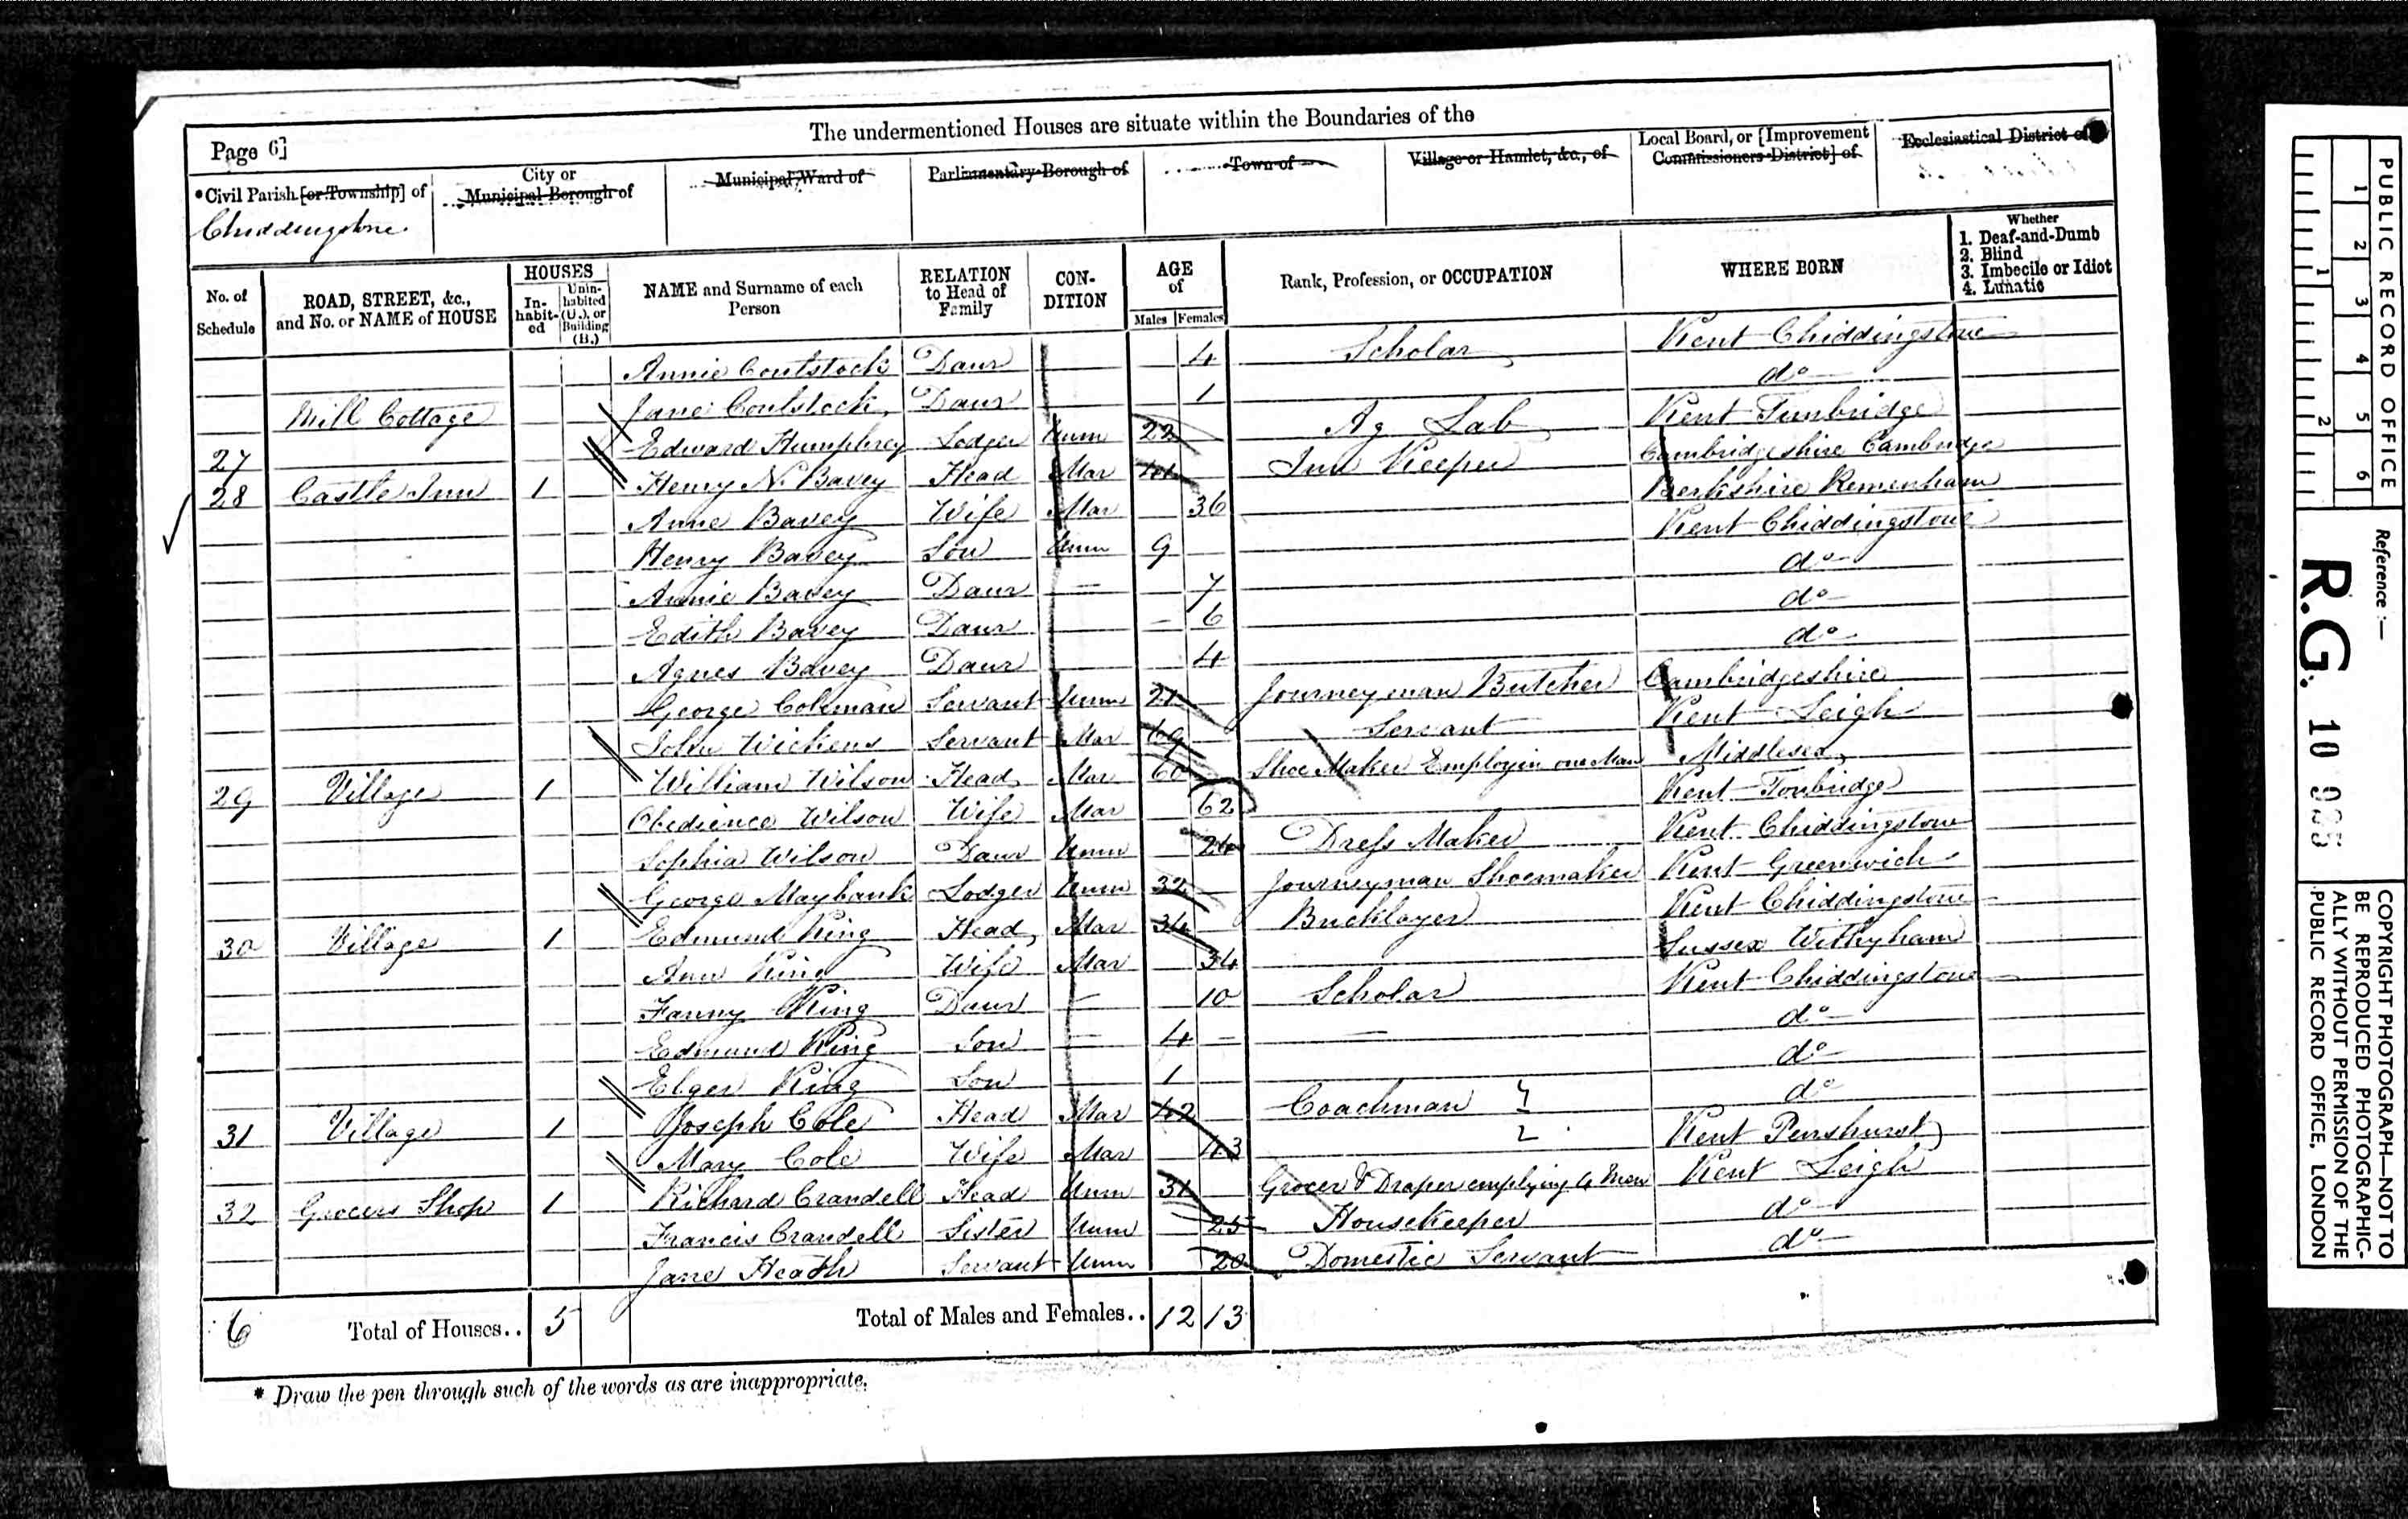 The undermentioned Houses are situate within the Boundaries of the
Page 6]
*Civil Parish [or Township] of
Chiddingstone
City or
Municipal Borough of
Municipal Ward of
Parliamentary Borough of
Town of
Village or Hamlet, &c., of
Local Board, or [Improvement
Commissioners District] of
Ecclesiastical District of
No. of
Schedule
ROAD, STREET, &c.,
and No. or NAME of HOUSE
HOUSES
In-
habit-
ed
Unin-
habited
(U.), or
Building
(B.)
NAME and Surname of each
Person
RELATION
to Head of
Family
CON-
DITION
AGE
of
Males Females
Rank, Profession, or OCCUPATION
WHERE BORN
Whether
1. Deaf-and-Dumb
2. Blind
3. Imbecile or Idiot
4. Lunatic
Annie Coultstock Daur 4 Scholar Kent Chiddingstone
Jane Coultstock Daur 1 do
27 Mill Cottage Edward Humphrey Lodger Unm 22 Ag Lab Kent Tunbridge
28 Castle Inn 1 Henry N. Bavey Head Mar Inn Keeper Cambridgeshire Cambridge
Anne Bavey Wife Mar 36 Berkshire Remenham
Henry Bavey Son Unm 9 Kent Chiddingstone
Annie Bavey Daur — 7 do
Edith Bavey Daur — 6 do
Agnes Bavey Daur 4 do
George Coleman Servant Unm 21 Journeyman Butcher Cambridgeshire
John Wickens Servant Mar 69 Servant Kent Leigh
29 Village 1 William Wilson Head Mar 60 Shoe Maker Employin one Man Middlesex
Obedience Wilson Wife Mar 62 Kent Tonbridge
Sophia Wilson Daur Unm 24 Dress Maker Kent Chiddingstone
George Maybank Lodger Unm 32 Journeyman Shoemaker Kent Greenwich
30 Village 1 Edmund King Head Mar 34 Bricklayer Kent Chiddingstone
Ann King Wife Mar 34 Sussex Withyham
Fanny King Daur — 10 Scholar Kent Chiddingstone
Edmund King Son — 4 — — do
Elger King Son 1 do
31 Village 1 Joseph Cole Head Mar 42 Coachman do
Mary Cole Wife Mar 43 2 Kent Penshurst
32 Grocers Shop 1 Richard Crandell Head Unm 31 Grocer & Draper employing 4 Men Kent Leigh
Francis Crandell Sister Unm 25 Housekeeper do
Jane Heath Servant Unm 20 Domestic Servant do
6 Total of Houses.. 5 Total of Males and Females.. 12 13
* Draw the pen through such of the words as are inappropriate.
PUBLIC RECORD OFFICE
1 2 3 4 5 6
1 2
Reference :—
R.G. 10
COPYRIGHT PHOTOGRAPH—NOT TO
BE REPRODUCED PHOTOGRAPHIC-
ALLY WITHOUT PERMISSION OF THE
PUBLIC RECORD OFFICE, LONDON